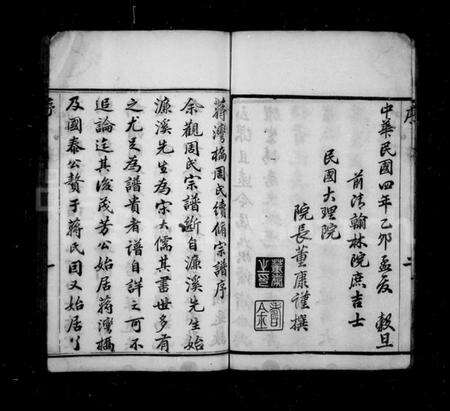 序
二
中華民國四年乙卯孟夏 穀旦
前清翰林院庶吉士
民國大理院
院長董康謹撰
董康
之印
蔣灣橋周氏續修宗譜序
余觀周氏宗譜斷自濂溪先生始
濂溪先生為宋大儒其書世多有
之尤足為譜貴者譜自詳之可不
追論迄其後茂芳公始居蔣灣橋
及國泰公贅于蔣氏因又始居丫
序
一